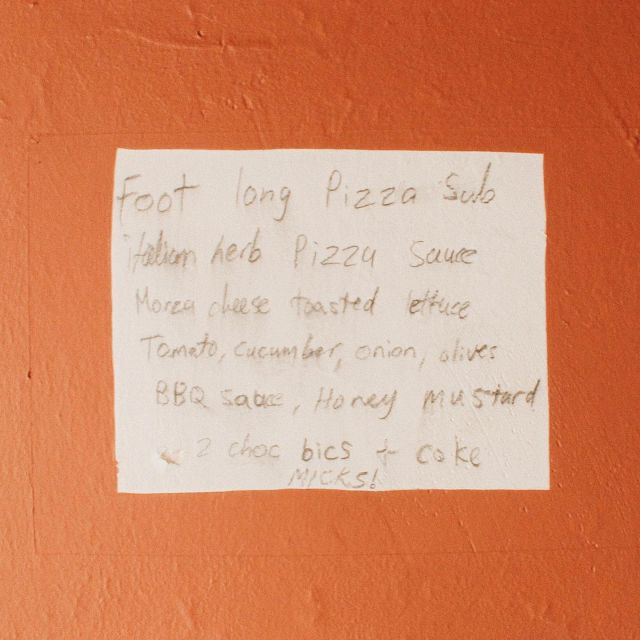 Foot long Pizza Sub
italian herb Pizza Sauce
Morza cheese toasted lettuce
Tomato, cucumber, onion, olives
BBQ sauce, Honey mustard
2 choc bics + coke
MICKS!